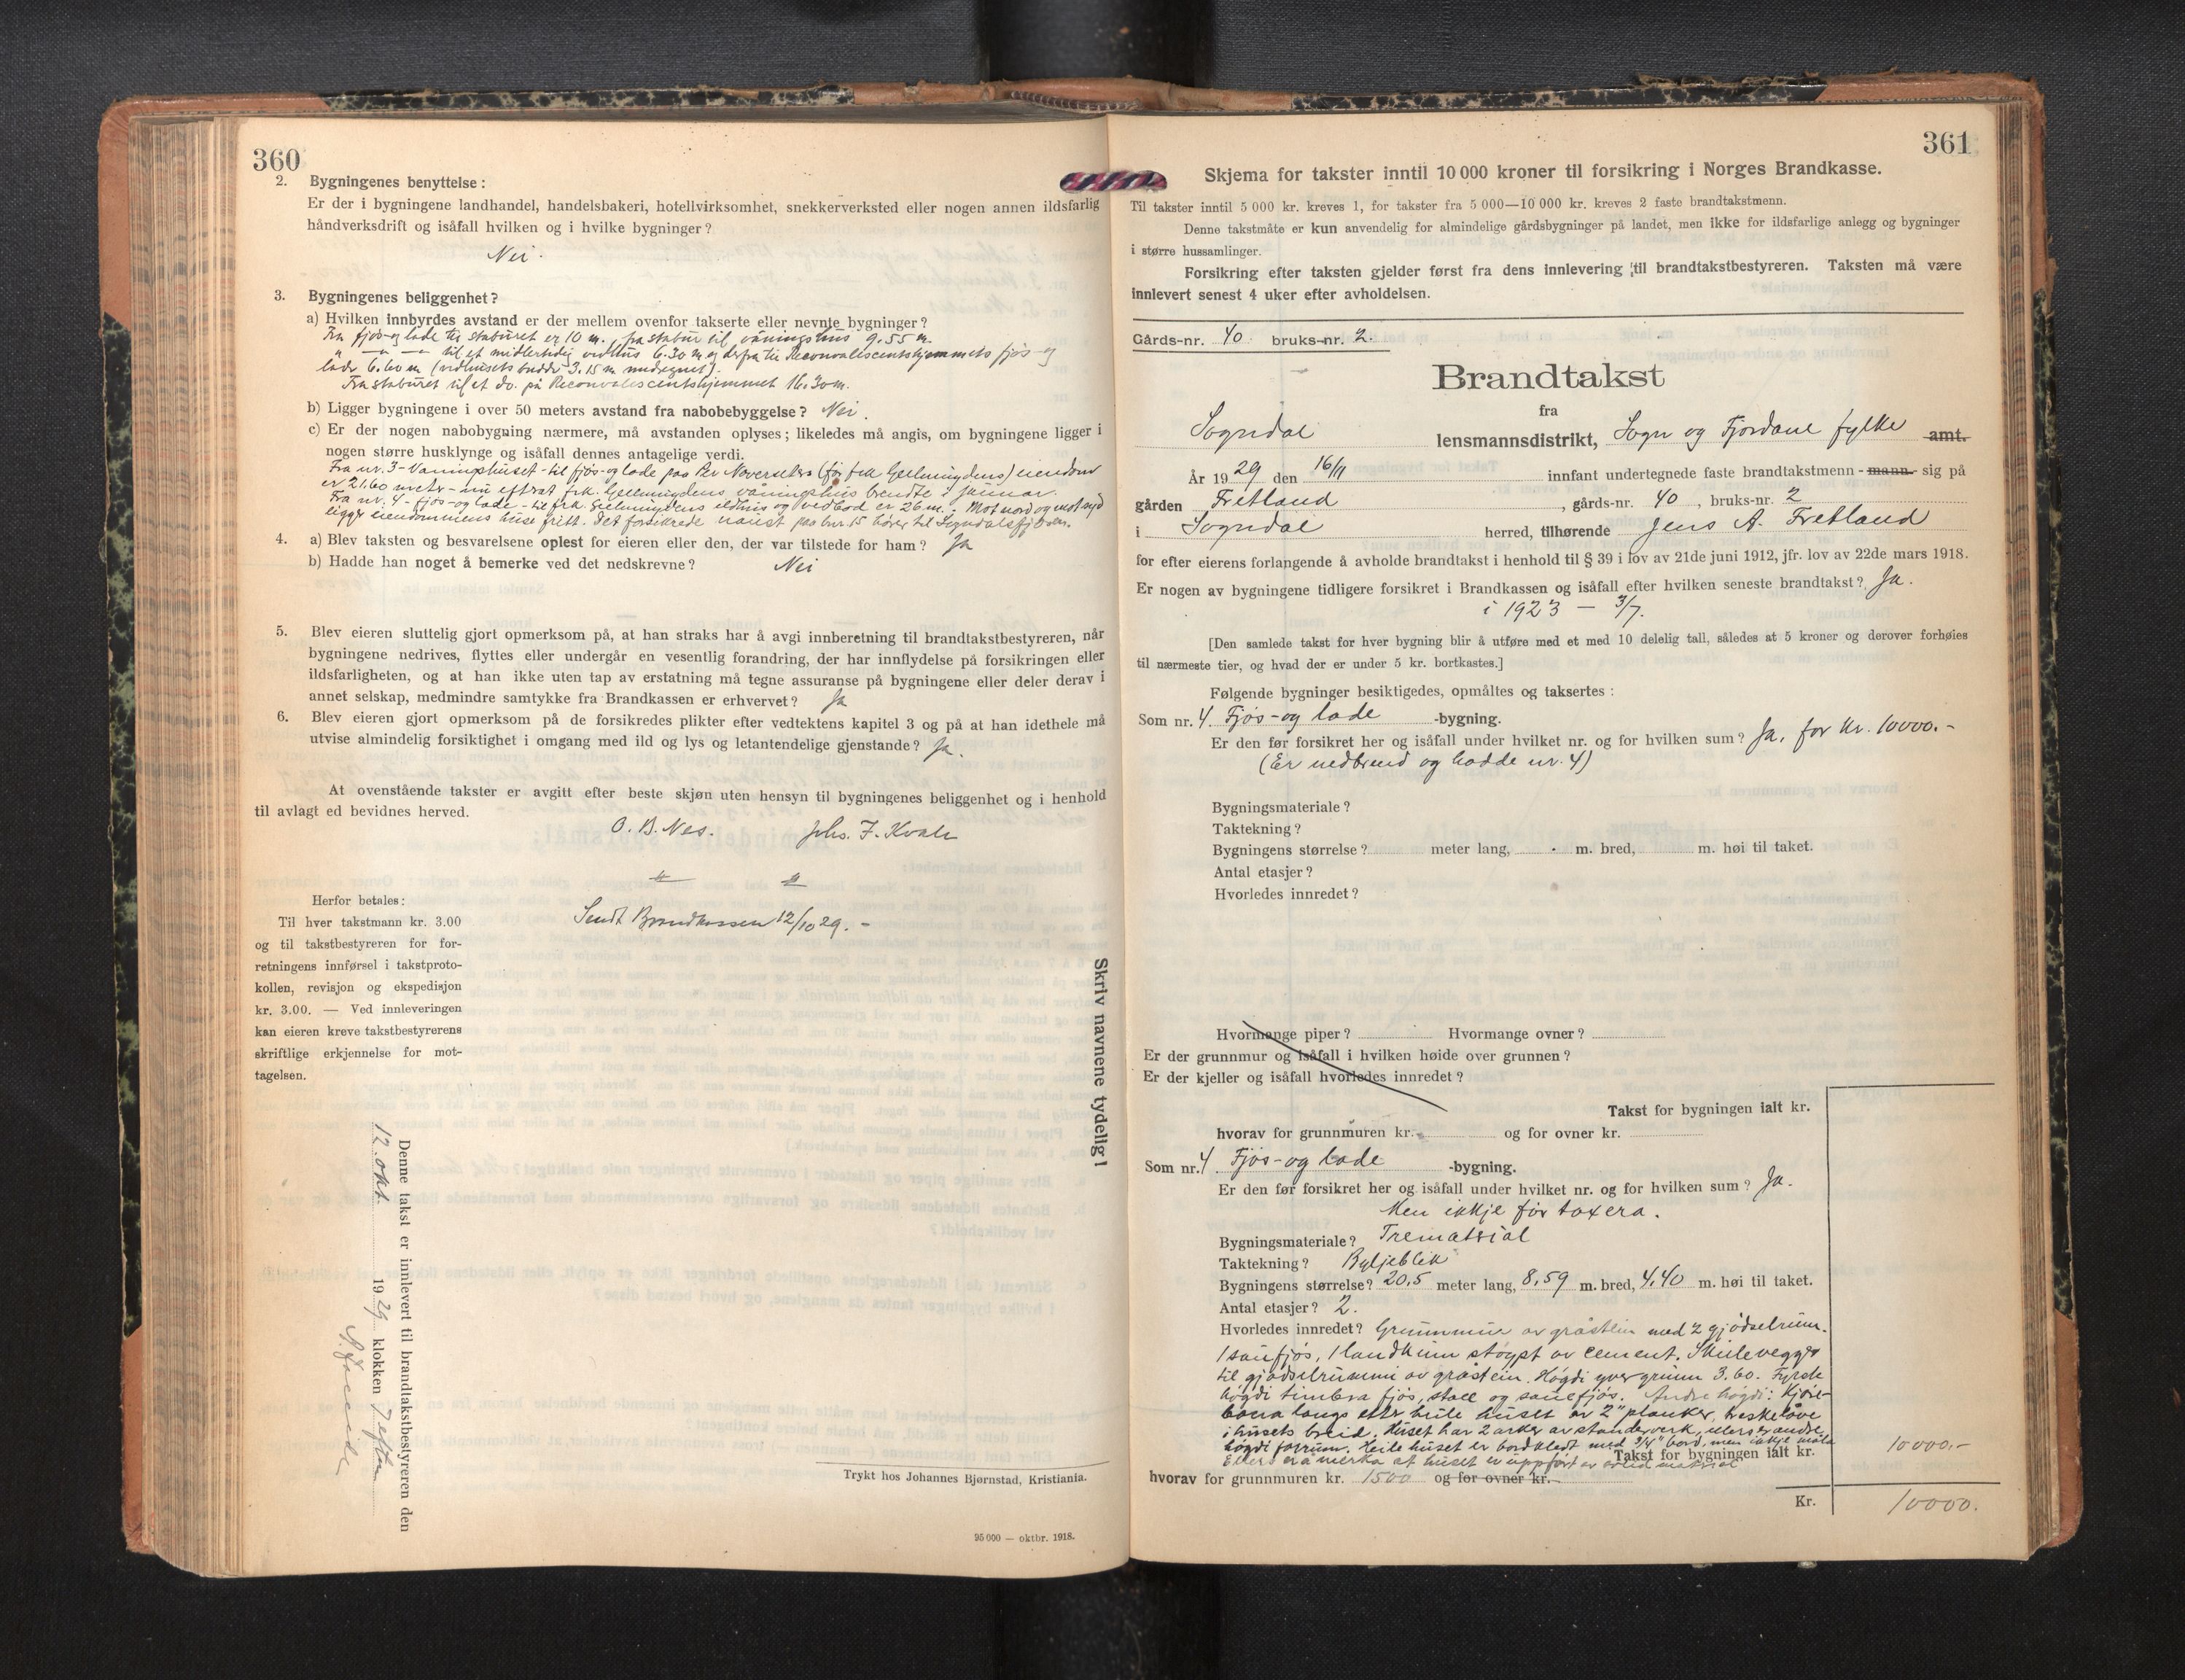 360
2. Bygningenes benyttelse:
Er der i bygningene landhandel, handelsbakeri, hotellvirksomhet, snekkerverksted eller nogen annen ildsfarlig
håndverksdrift og isåfall hvilken og i hvilke bygninger?
Nei.
3. Bygningenes beliggenhet?
a) Hvilken innbyrdes avstand er der mellem ovenfor takserte eller nevnte bygninger?
Fra fjøs-og lade til staburet er 10 m., fra stabur til våningshus 9.55 m.
" — " — til et midlertidig vedhus 6.30 m og derfra til Reconvaliscentshjemmets fjøs og
lade 6.60 m (vedhusets bredde 3.15 m medregnet).
Fra staburet til et do. på Reconvaliscentshjemmet 16.30 m.
b) Ligger bygningene i over 50 meters avstand fra nabobebyggelse? Nei.
c) Er der nogen nabobygning nærmere, må avstanden oplyses; likeledes må angis, om bygningene ligger i
nogen større husklynge og isåfall dennes antagelige verdi.
Fra nr. 3 - Vaningshuset - til fjøs-og lade paa Per Navarseters (før frk Gjelmundens) eiendom
er 21.60 meter - nu efterat frk. våningshus brendte i januar.
Fra nr. 4 - fjøs-og lade - til frk. eldhus og vedbod er 26 m. Mot nord og mot syd
ligger eiendommens huse fritt. Det forsikrede naust paa bnr. 15 hører til Sogndalsfjøra.
4. a) Blev taksten og besvarelsene oplest for eieren eller den, der var tilstede for ham? Ja
b) Hadde han noget å bemerke ved det nedskrevne? Nei
5. Blev eieren sluttelig gjort opmerksom på, at han straks har å avgi innberetning til brandtakstbestyreren, når
bygningene nedrives, flyttes eller undergår en vesentlig forandring, der har innflydelse på forsikringen eller
ildsfarligheten, og at han ikke uten tap av erstatning må tegne assuranse på bygningene eller deler derav i
annet selskap, medmindre samtykke fra Brandkassen er erhvervet? Ja
6. Blev eieren gjort opmerksom på de forsikredes plikter efter vedtektens kapitel 3 og på at han idethele må
utvise almindelig forsiktighet i omgang med ild og lys og letantendelige gjenstande? Ja.
At ovenstående takster er avgitt efter beste skjøn uten hensyn til bygningenes beliggenhet og i henhold
til avlagt ed bevidnes herved.
O. B. Nes. Johs. F. Kvale
Herfor betales:
Til hver takstmann kr. 3.00
og til takstbestyreren for for-
retningens innførsel i takstproto-
kollen, revisjon og ekspedisjon
kr. 3.00. — Ved innleveringen
kan eieren kreve takstbestyrerens
skriftlige erkjennelse for mot-
tagelsen.
Sendt Brandkassen 12/10 29. -
Skriv navnene tydelig!
Denne takst er innlevert til brandtakstbestyreren den
12. okt. 1929 klokken 7 efterm
Trykt hos Johannes Bjørnstad, Kristiania.
95 000 — oktbr. 1918.
361
Skjema for takster inntil 10 000 kroner til forsikring i Norges Brandkasse.
Til takster inntil 5 000 kr. kreves 1, for takster fra 5 000—10 000 kr. kreves 2 faste brandtakstmenn.
Denne takstmåte er kun anvendelig for almindelige gårdsbygninger på landet, men ikke for ildsfarlige anlegg og bygninger
i større hussamlinger.
Forsikring efter taksten gjelder først fra dens innlevering til brandtakstbestyreren. Taksten må være
innlevert senest 4 uker efter avholdelsen.
Gårds-nr. 40 bruks-nr. 2.
Brandtakst
fra
Sogndal lensmannsdistrikt, Sogn og Fjordane fylke amt.
År 1929 den 16/11 innfant undertegnede faste brandtakstmenn - mann - sig på
gården Fretland, gårds-nr. 40, bruks-nr. 2
i Sogndal herred, tilhørende Jens A. Fretland
for efter eierens forlangende å avholde brandtakst i henhold til § 39 i lov av 21de juni 1912, jfr. lov av 22de mars 1918.
Er nogen av bygningene tidligere forsikret i Brandkassen og isåfall efter hvilken seneste brandtakst? Ja.
i 1923 — 3/7.
[Den samlede takst for hver bygning blir å utføre med et med 10 delelig tall, således at 5 kroner og derover forhøies
til nærmeste tier, og hvad der er under 5 kr. bortkastes.]
Følgende bygninger besiktigedes, opmåltes og taksertes:
Som nr. 4. Fjøs-og lade -bygning.
Er den før forsikret her og isåfall under hvilket nr. og for hvilken sum? Ja, for kr. 10000.-
(Er nedbrend og hadde nr. 4)
Bygningsmateriale?
Taktekning?
Bygningens størrelse? meter lang, m. bred, m. høi til taket.
Antal etasjer?
Hvorledes innredet?
Hvormange piper? Hvormange ovner?
Er der grunnmur og isåfall i hvilken høide over grunnen?
Er der kjeller og isåfall hvorledes innredet?
Takst for bygningen ialt kr.
hvorav for grunnmuren kr. og for ovner kr.
Som nr. 4 Fjøs-og lade -bygning.
Er den før forsikret her og isåfall under hvilket nr. og for hvilken sum? Ja.
Men ikkje før taxera.
Bygningsmateriale? Trematrial
Taktekning? Bylgjeblik
Bygningens størrelse? 20,5 meter lang, 8,59 m. bred, 4,40 m. høi til taket.
Antal etasjer? 2.
Hvorledes innredet? Grunnmur av gråstein med 2 gjødselrum.
1 saufjøs, 1 landkum støypt av cement. Skilevegger
til gjødselrummi av gråstein. Høgdi yver grunn 3.60. Fyrste
høgdi timbra fjøs, stall og sauefjøs. Andre høgdi: Kjøre-
bana langs etter heile huset av 2" planker, treskelåve
i husets breid. Huset har 2 arker av standerverk, ellers er andre
høgdi forrum. Heile huset er bordkledt med 3/4" bord, men ikkje måla
Ellers er å merka at huset er uppført av matrial
Takst for bygningen ialt kr. 10000.-
hvorav for grunnmuren kr. 1500 og for ovner kr.
Kr. 10000.